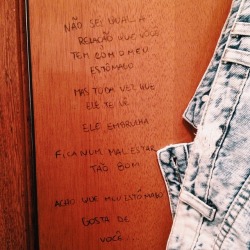 NÃO SEI QUAL A
RELAÇÃO QUE VOCÊ
TEM COM O MEU
ESTÔMAGO
MAS TODA VEZ QUE
ELE TE VÊ
ELE EMBRULHA
FICA NUM MAL ESTAR
TÃO BOM
ACHO QUE MEU ESTÔMAGO
GOSTA DE
VOCÊ